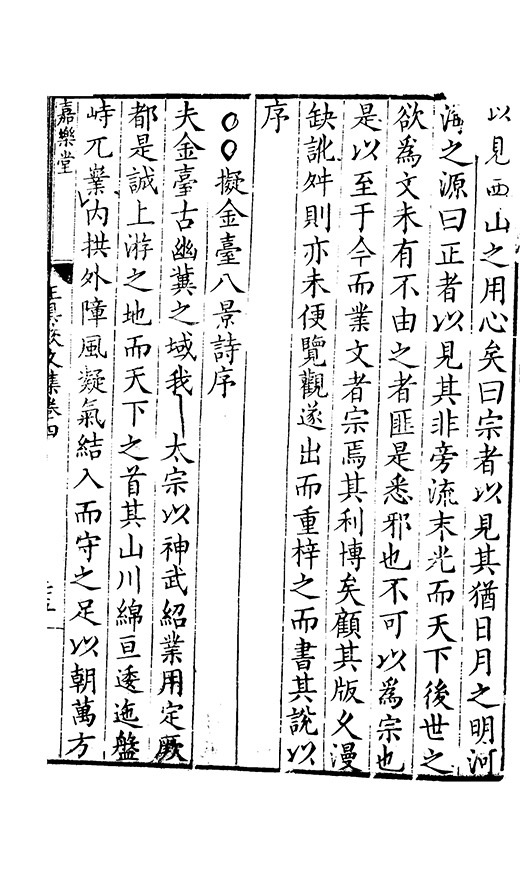 以見西山之用心矣曰宗者以見其猶日月之明河
海之源曰正者以見其非旁流末光而天下後世之
欲為文未有不由之者匪是悉邪也不可以為宗也
是以至于今而業文者宗焉其利博矣顧其版乆漫
缺訛舛則亦未便覽觀遂出而重梓之而書其說以
序
○○擬金臺八景詩序
夫金臺古幽冀之域我太宗以神武紹業用定厥
都是誠上游之地而天下之首其山川綿亘逶迤盤
峙兀嶪内拱外障風凝氣結入而守之足以朝萬方
嘉樂堂
文集卷四